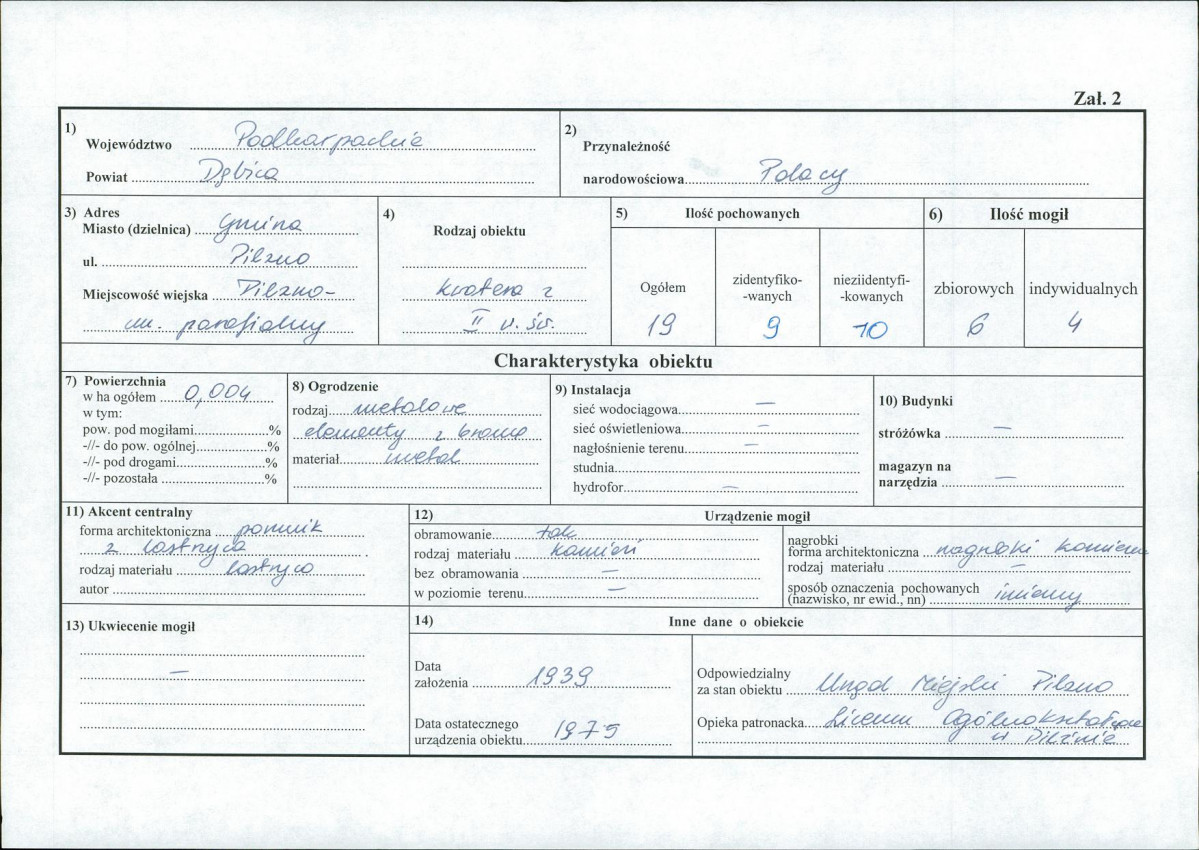 Zał. 2
1)
Województwo Podkarpackie
Powiat Dębica
2)
Przynależność
narodowościowa Polacy
3) Adres
Miasto (dzielnica) Gmina
ul. Pilzno
Miejscowość wiejska Pilzno-
cm. parafialny
4)
Rodzaj obiektu
kwatera z
II w. św.
5) Ilość pochowanych
Ogółem
19
zidentyfiko-
-wanych
9
nieziidentyfi-
-kowanych
10
6) Ilość mogił
zbiorowych
6
indywidualnych
4
Charakterystyka obiektu
7) Powierzchnia
w ha ogółem 0,004
w tym:
pow. pod mogiłami %
-//- do pow. ogólnej %
-//- pod drogami %
-//- pozostała %
8) Ogrodzenie
rodzaj metalowe
elementy z bramą
materiał metal
9) Instalacja
sieć wodociągowa —
sieć oświetleniowa —
nagłośnienie terenu —
studnia
hydrofor —
10) Budynki
stróżówka —
magazyn na
narzędzia —
11) Akcent centralny
forma architektoniczna pomnik
z lastryca
rodzaj materiału lastryco
autor
12) Urządzenie mogił
obramowanie tak
rodzaj materiału kamień
bez obramowania —
w poziomie terenu —
nagrobki
forma architektoniczna nagrobki kamienn
rodzaj materiału —
sposób oznaczenia pochowanych
(nazwisko, nr ewid., nn) imienny
13) Ukwiecenie mogił
—
14) Inne dane o obiekcie
Data
założenia 1939
Data ostatecznego
urządzenia obiektu 1975
Odpowiedzialny
za stan obiektu Urząd Miejski Pilzno
Opieka patronacka Liceum Ogólnokształcące
w Pilźnie